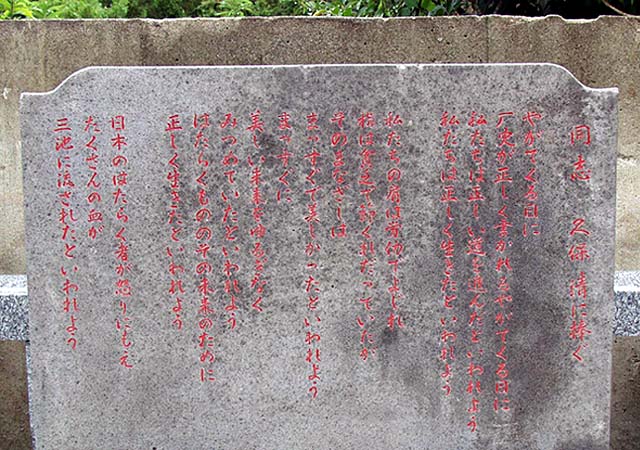 同志 久保 清に捧ぐ
やがてくる日に
厂史が正しく書かれるやがてくる日に
私たちは正しい道を進んだといわれよう
私たちは正しく生きたといわれよう
私たちの肩は労働でよじれ
指は貧乏で節くれだっていたが
そのまなざしは
まっすぐで美しかったといわれよう
まっすぐに
美しい未来をゆるぎなく
みつめていたといわれよう
はたらくもののその未来のために
正しく生きたといわれよう
日本のはたらく者が怒りにもえ
たくさんの血が
三池に流されたといわれよう